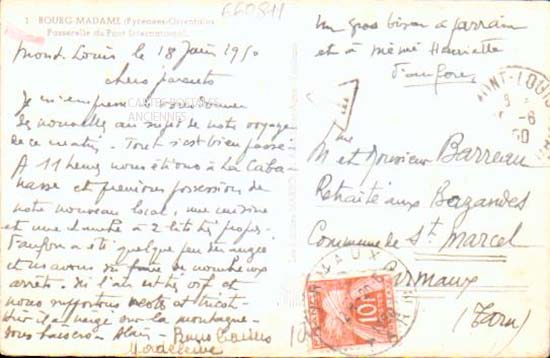 660811
1 BOURG-MADAME (Pyrénées-Orientales)
Passerelle du Pont International.
Mont-Louis le 18 Juin 1950
chers parents
Je m'empresse de vous donner
des nouvelles au sujet de notre voyage
de ce matin. Tout s'est bien passé
A 11 heures nous étions à La Caba-
nasse et prenions possession de
notre nouveau local, une cuisine
et une chambre à 2 lits très propre.
a été quelque peu
et nous avons dû faire de nombreux
arrêts. Ici l'air est vif et
nous supportons veste et tricot.
Hier il a neigé sur la montagne
Bons baisers Alain Bons baisers
Madeleine
CARTES POSTALES
ANCIENNES
Un gros bison a parrain
et à mémé Henriette
MONT-LOUIS
T
M et Monsieur Barreau
Retraité aux Bagandes
Commune de St Marcel
Carmaux
(Tarn)
CARMAUX
10F